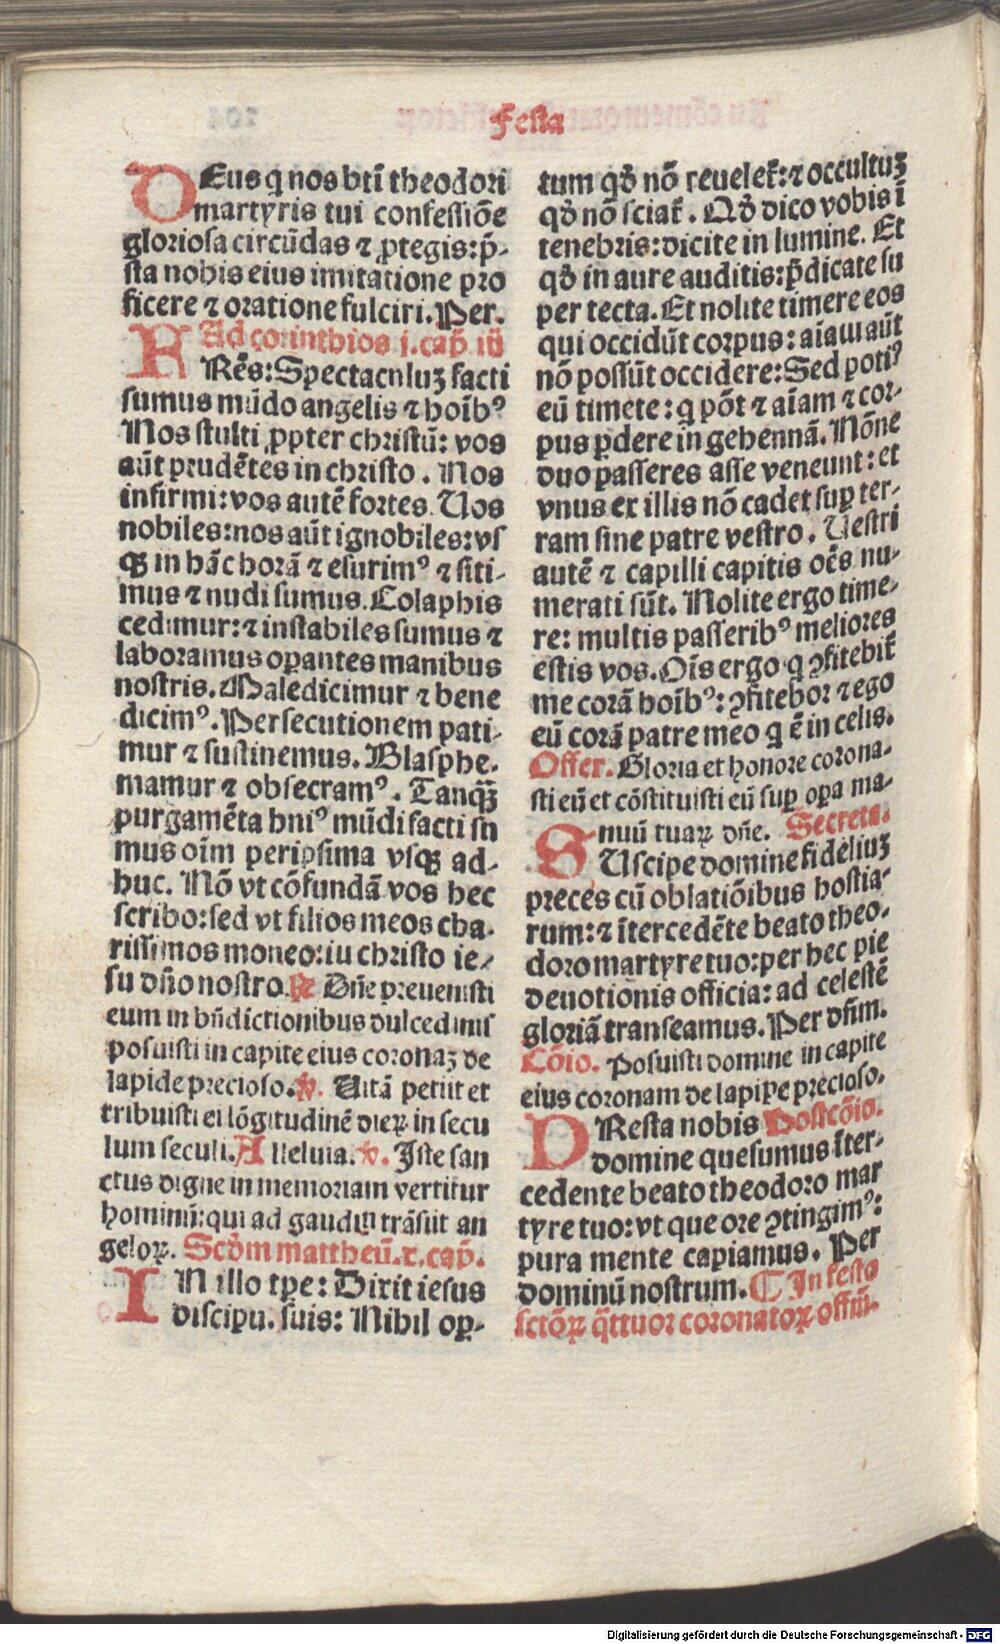 Festa
DEus q nos btī theodori
martyris tui confessiōe
gloriosa circūdas ⁊ ꝓtegis:p̄-
sta nobis eius imitatione pro
ficere ⁊ oratione fulciri. Per.
Ad corinthios j. cap̄ iiij
FRēs: Spectaculuꝫ facti
sumus mūdo angelis ⁊ hoībꝰ
Nos stulti ꝓpter christū: vos
aūt prudētes in christo. Nos
infirmi: vos autē fortes. Uos
nobiles: nos aūt ignobiles: vs
qꝫ in hāc horā ⁊ esurimꝰ ⁊ siti-
mus ⁊ nudi sumus. Colaphis
cedimur: ⁊ instabiles sumus ⁊
laboramus oꝑantes manibus
nostris. Maledicimur ⁊ bene
dicimꝰ. Persecutionem pati-
mur ⁊ sustinemus. Blasphe-
mamur ⁊ obsecramꝰ. Tanqꝫ̄
purgamēta hniꝰ mūdi facti su
mus oīm peripsima vsqꝫ ad-
huc. Nō vt cōfundā vos hec
scribo: sed vt filios meos cha-
rissimos moneo: iu christo ie-
su dño nostro. ℞ Dñe preuenisti
eum in bñdictionibus dulcedinis
posuisti in capite eius coronaꝫ de
lapide precioso. ℣. Uitā petiit et
tribuisti ei lōgitudinē dieꝝ in secu
lum seculi. Alleluia. ℣. Iste san
ctus digne in memoriam vertitur
hominū: qui ad gaudiū trāsiit an
geloꝝ. Scďm mattheū. x. cap̄.
IN illo tp̄e: Dixit iesus
discipu. suis: Nihil oꝑ-
tum qď nō reueleꝉ: ⁊ occultuꝫ
qď nō sciaꝉ. Qď dico vobis ī
tenebris: dicite in lumine. Et
qď in aure auditis: p̄dicate su
per tecta. Et nolite timere eos
qui occidūt corpus: aīaꝫ aūt
nō possūt occidere: Sed potiꝰ
eū timete: q pōt ⁊ aīam ⁊ cor-
pus ꝑdere in gehennā. Nōne
duo passeres asse veneunt: et
vnus ex illis nō cadet suꝑ ter-
ram sine patre vestro. Uestri
autē ⁊ capilli capitis oēs nu-
merati sūt. Nolite ergo time-
re: multis passeribꝰ meliores
estis vos. Oīs ergo q ꝯfitebiꝉ
me corā hoībꝰ: ꝯfitebor ⁊ ego
eū corā patre meo q ē in celis.
Offer. Gloria et honore corona-
sti eū et cōstituisti eū suꝑ oꝑa ma-
nuū tuaꝝ dñe. Secreta.
SUscipe domine fideliuꝫ
preces cū oblatiōibus hostia-
rum: ⁊ ītercedēte beato theo-
doro martyre tuo: per hec pie
deuotionis officia: ad celestē
gloriā transeamus. Per dñm.
Cōio. Posuisti domine in capite
eius coronam de lapipe precioso.
PResta nobis Postcōio.
domine quesumus īter-
cedente beato theodoro mar
tyre tuo: vt que ore ꝯtingimꝰ:
pura mente capiamus. Per
dominū nostrum. ¶ In festo
sctōꝝ q̄ttuor coronatoꝝ offīū.
Digitalisierung gefördert durch die Deutsche Forschungsgemeinschaft - DFG